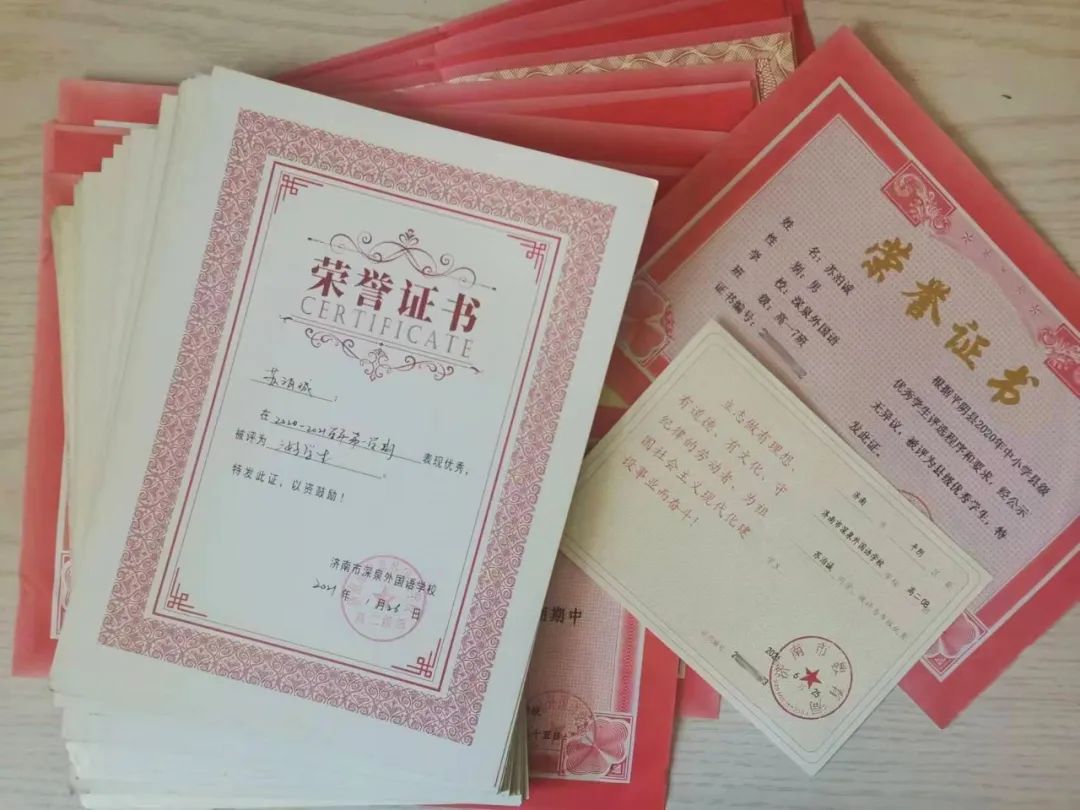 荣誉证书
CERTIFICATE
苏泊诚：
在2020-2021学年第一学期表现优秀，
被评为三好学生。
特发此证，以资鼓励！
济南市深泉外国语学校
2021年1月26日
高二级部
期中
荣誉证书
姓名：苏泊诚
性别：男
学校：深泉外国语
班级：高一7班
证书编号：
根据平阴县2020年中小学县级
优秀学生评选程序和要求，经公示
无异议，被评为县级优秀学生，特
发此证。
立志做有理想、
有道德、有文化、守
纪律的劳动者，为祖
国社会主义现代化建
设事业而奋斗！
济南市平阴区县
济南市深泉外国语学校学校高二
苏泊诚同学，被评为市级优秀
学生。
6 25